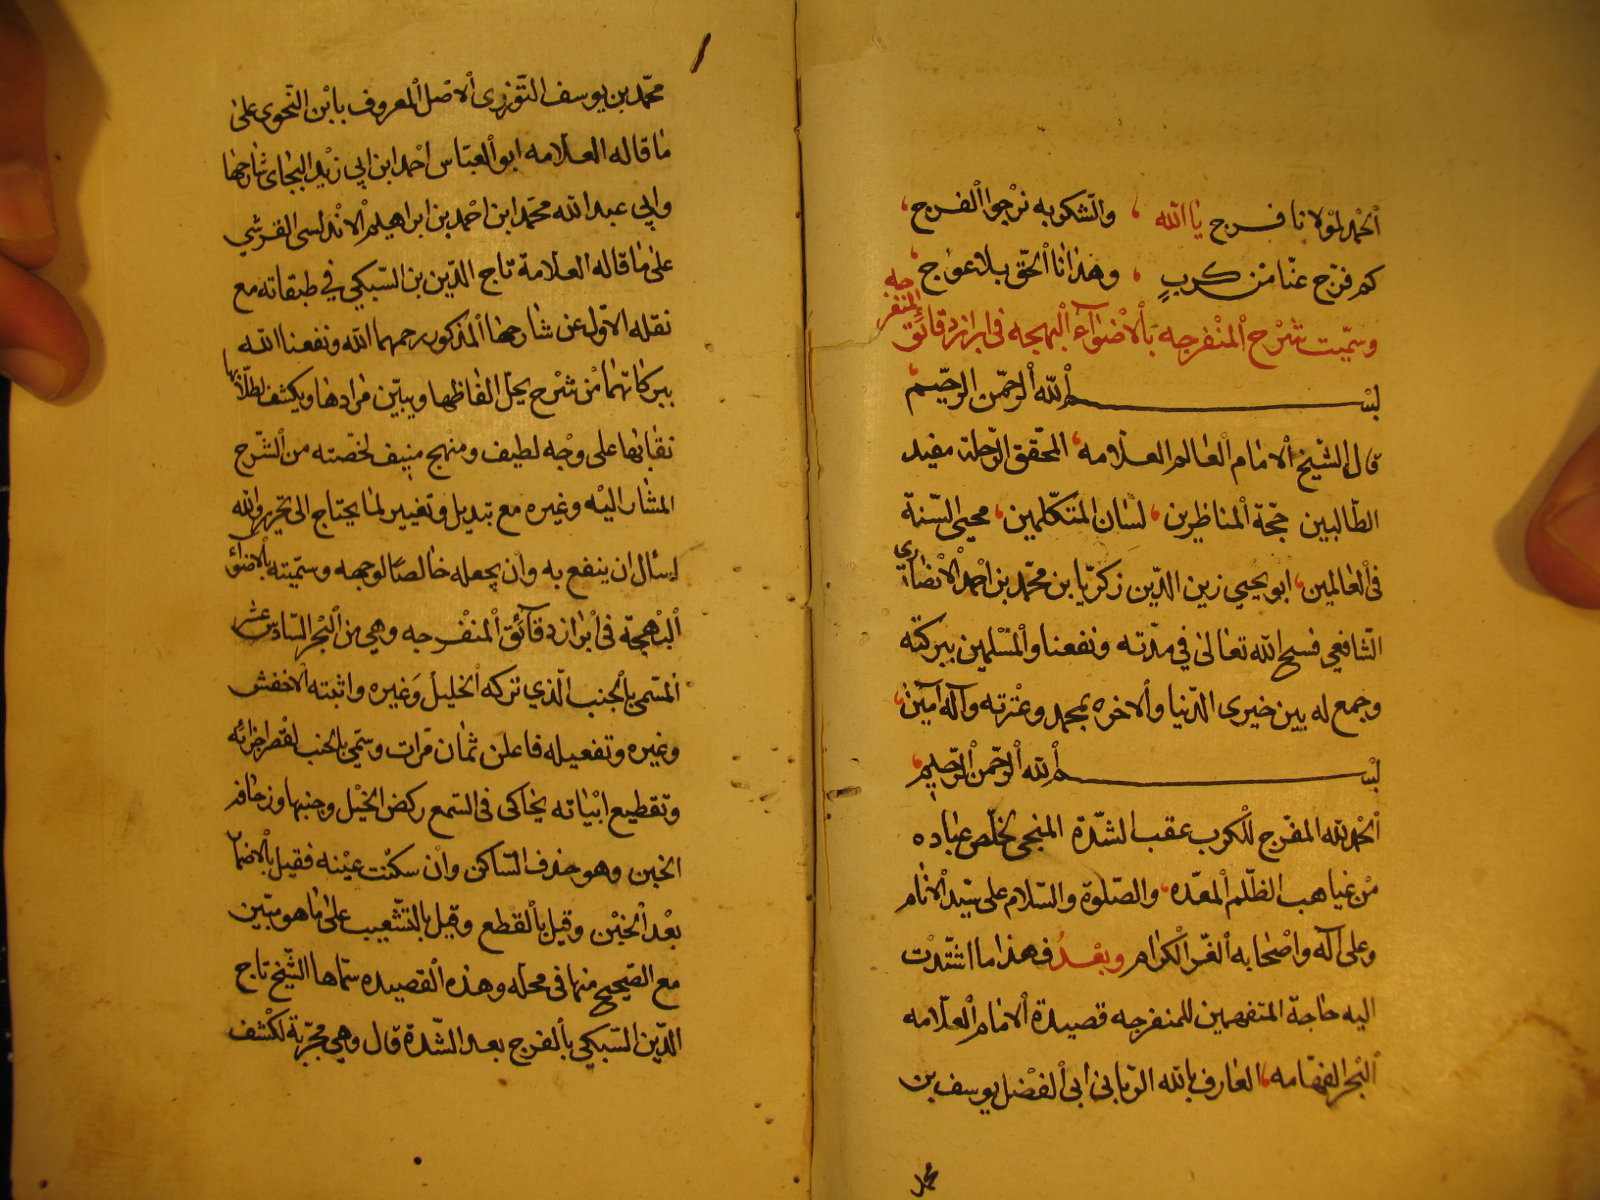 الحمد لمولانا فرج يا الله والشكو به نرجوا الفرج
كم فرج عنا من كرب وهذا أنا الحق بلا عوج
وسميت شرح المنفرجه بالأضوآء البهجه فى ابراز دقائق المنفرجه
بسم الله الرحمن الرحيم
قال الشيخ الامام العالم العلامه المحقق الرحلة مفيد
الطالبين حجة المناظرين لسان المتكلمين محيى السنة
فى العالمين ابو يحيى زين الدين زكريا بن محمد بن احمد الانصاري
الشافعي فسح الله تعالى في مدته ونفعنا والمسلمين ببركته
وجمع له بين خيرى الدنيا والاخره بمحمد وعترته وآله آمين
بسم الله الرحمن الرحيم
الحمد لله المفرج للكروب عقب الشدة المنجى لخلص عباده
من غياهب الظلم المعده والصلوة والسلام على سيد الانام
وعلى آله واصحابه الغر الكرام وبعد فهذا ما اشتدت
اليه حاجة المتفهمين للمنفرجه قصيدة الامام العلامه
البحر الفهامه العارف بالله الربانى ابى الفضل يوسف بن
محمد
محمد بن يوسف التوزرى الاصل المعروف بابن النحوى على
ما قاله العلامه ابو العباس احمد ابن ابي زيد البجاى شارحها
وابي عبد الله محمد ابن احمد بن ابراهيم الاندلسى القرشي
على ما قاله العلامة تاج الدين بن السبكي في طبقاته مع
نقله الاول عن شارحها المذكور رحمهما الله ونفعنا الله
ببركاتهما من شرح يحل الفاظها ويبين مرادها ويكشف لطلابها
نقابها على وجه لطيف ومنهج منيف لخصته من الشرح
المشار اليه وغيره مع تبديل وتغيير لما يحتاج الى تحرير والله
اسأل ان ينفع به وان يجعله خالصا لوجهه وسميته بالاضواء
البهجة فى ابراز دقائق المنفرجه وهي من البحر السادس عشر
المسمى بالجنب الذي تركه الخليل وغيره واثبته الاخفش
وغيره وتفعيله فاعلن ثمان مرات وسمي بالخبب لقصر اجزائه
وتقطيع ابياته يحاكى فى السمع ركض الخيل وجنبها وزحافه
الخبن وهو حذف الساكن وان سكنت عينه فقيل بالاضمار
بعد الخبن وقيل بالقطع وقيل بالتشعيب على ما هو مبين
مع الصحيح منها فى محله وهذه القصيده سماها الشيخ تاج
الدين السبكي بالفرج بعد الشدة قال وهي مجربة لكشف